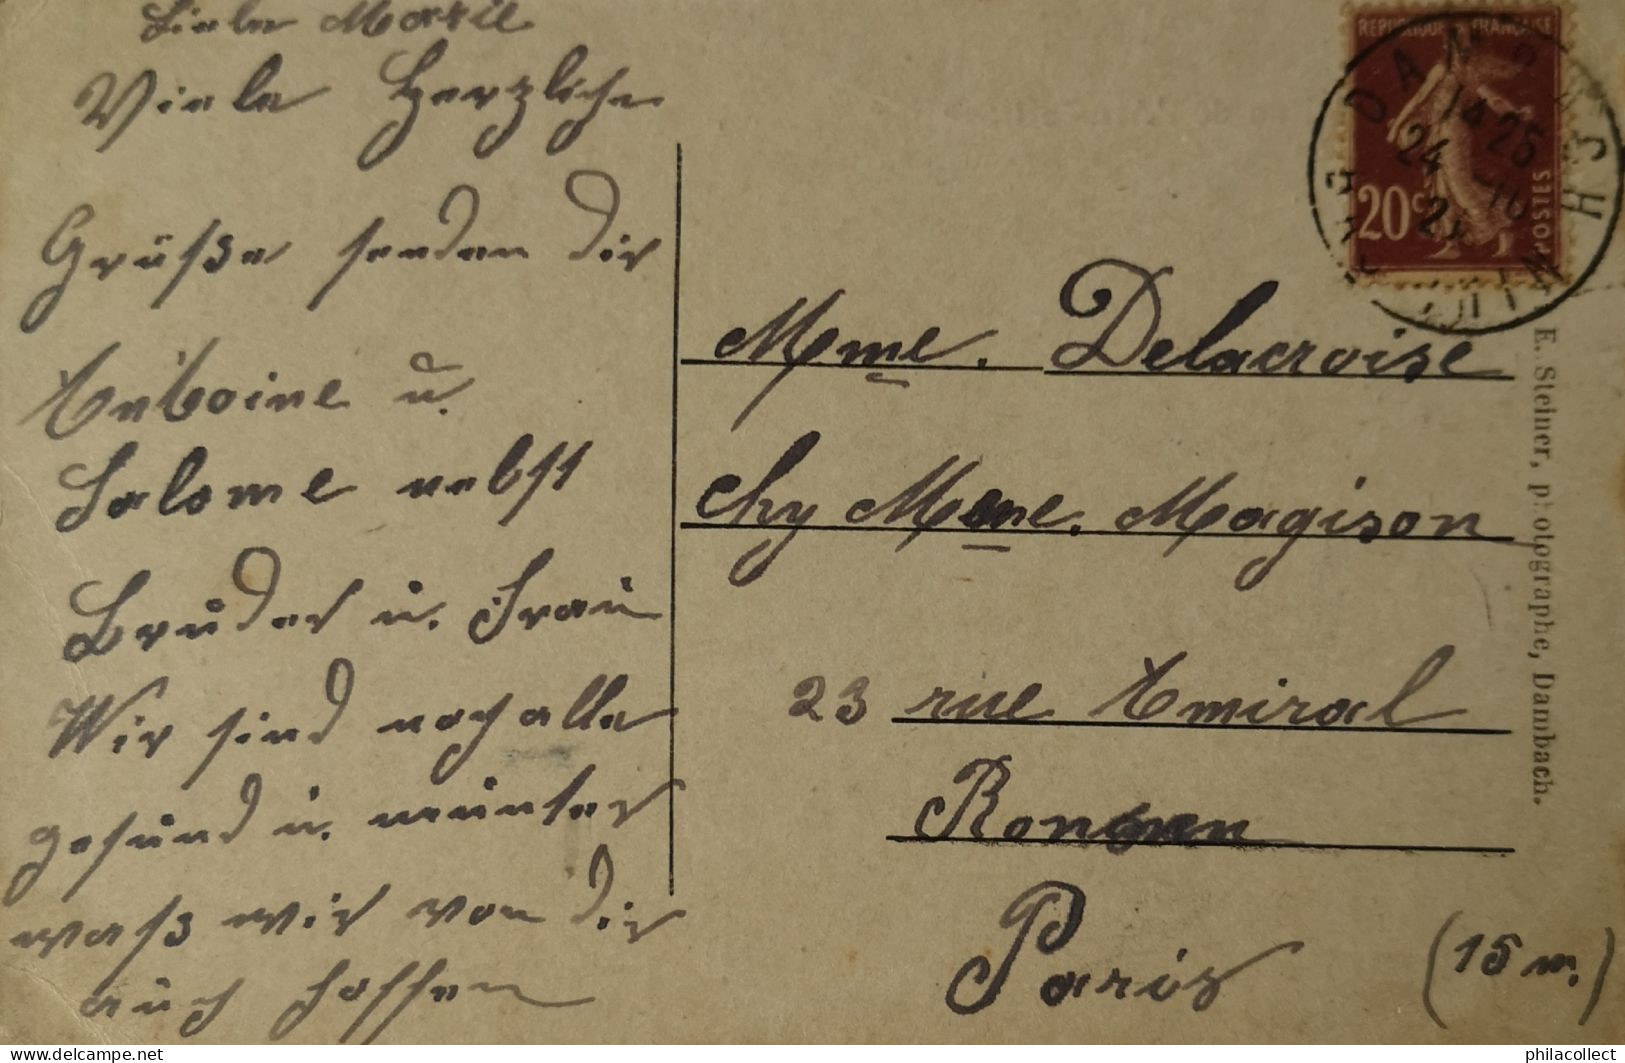 Liebe Marie
Viele Herzliche
Grüße senden dir
Antoine u.
Salome nebst
Bruder u. Frau
Wir sind noch alle
gesund u. munter
waß wir von dir
auch hoffen
REPUBLIQUE FRANÇAISE
20c
POSTES
DAMBACH
14 25
24 -10
BAS RHIN
Mme. Delacroise
chy Mme. Magison
23 rue Amiral
Paris
(15 m.)
E. Steiner, photographe, Dambach.
philacollect
delcampe.net